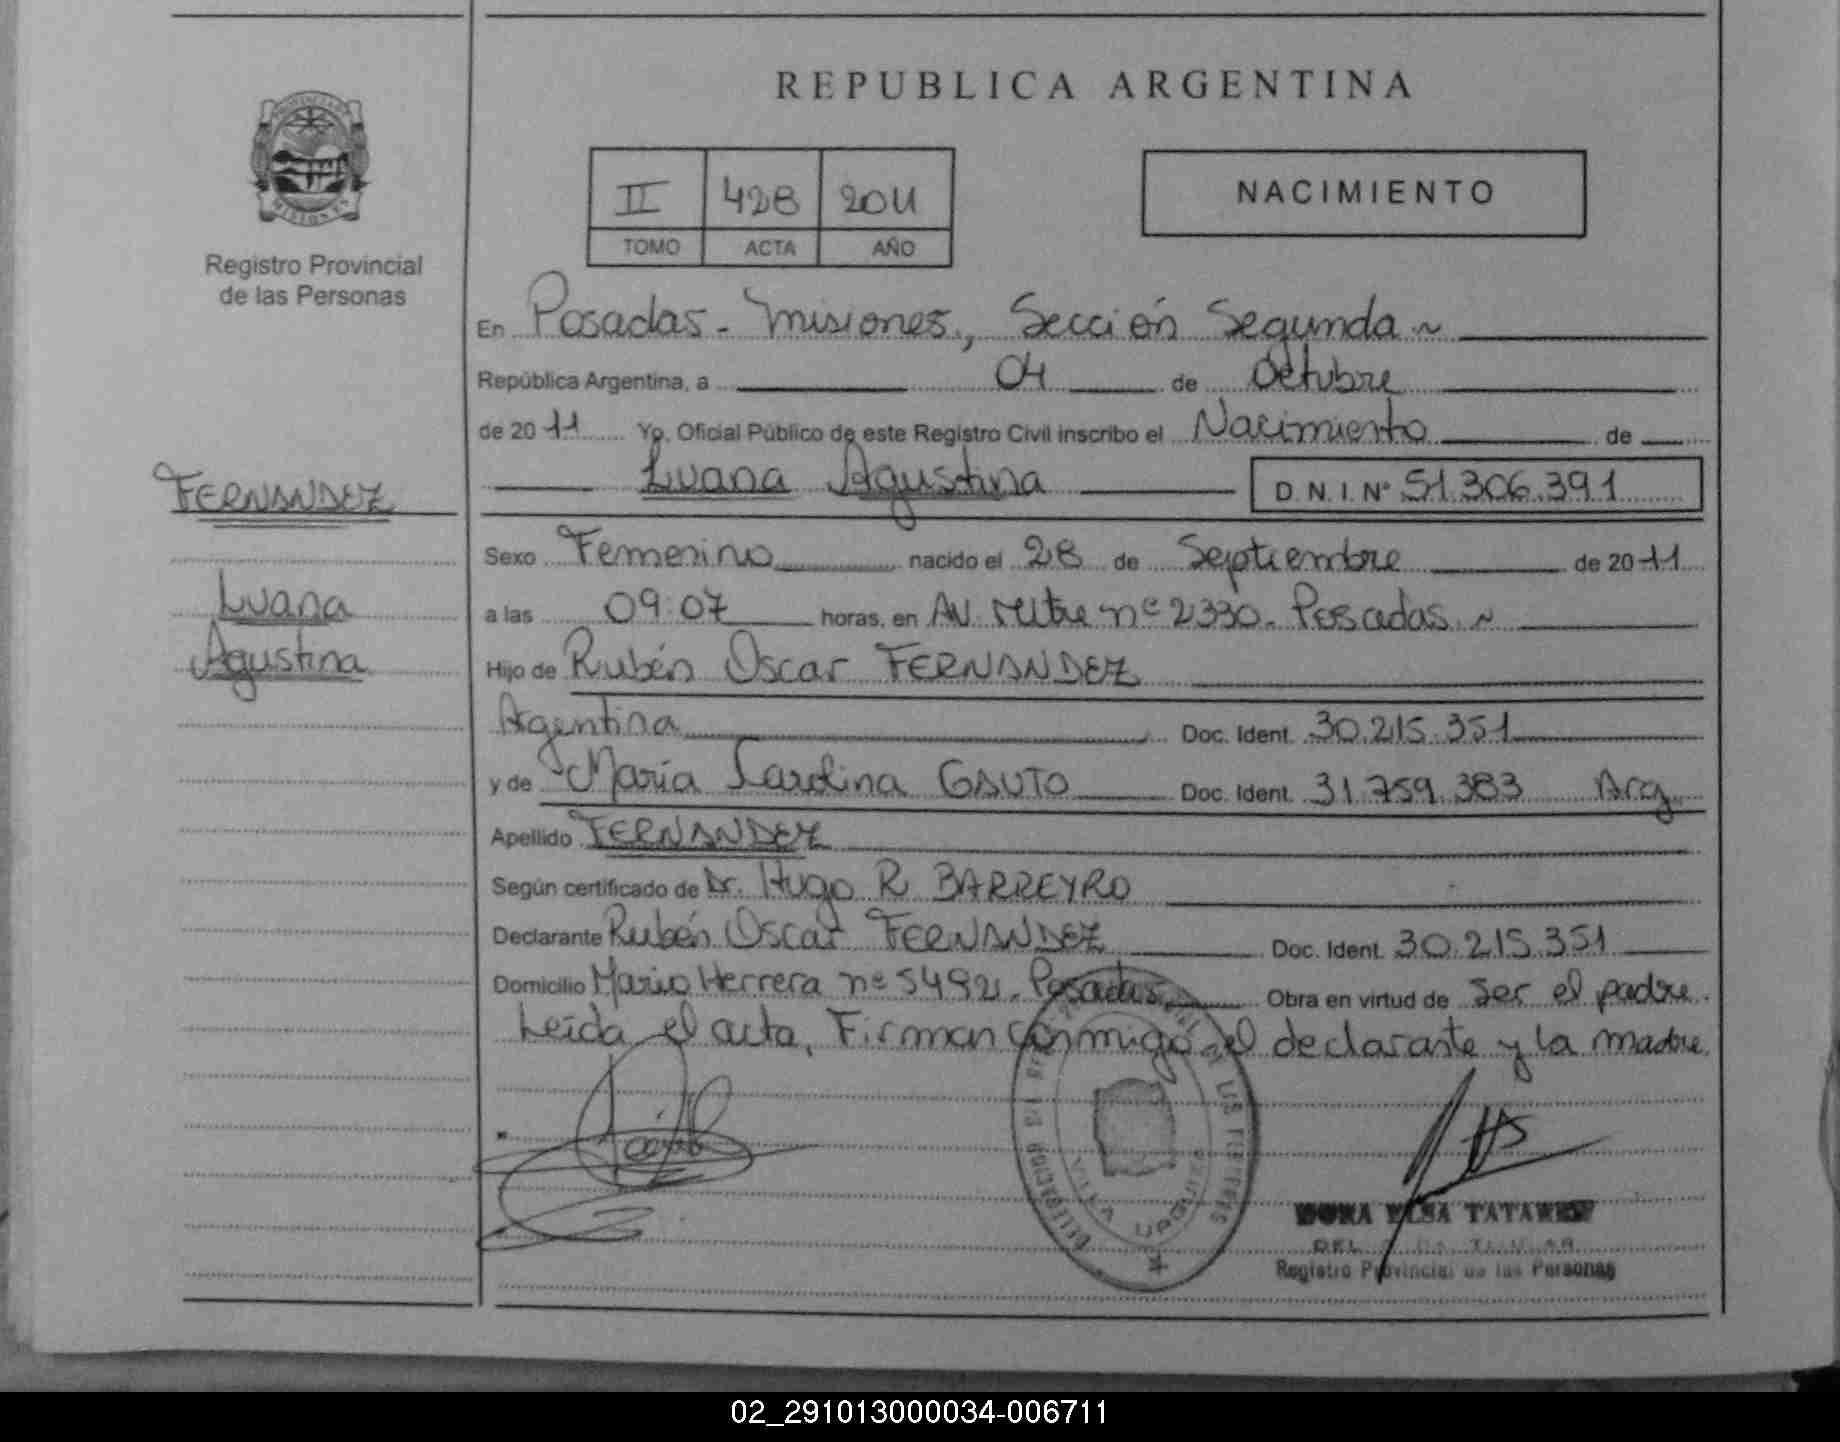 REPUBLICA ARGENTINA
PROVINCIA DE
MISIONES
Registro Provincial
de las Personas
II 428 2011
TOMO ACTA AÑO
NACIMIENTO
En Posadas - Misiones, Sección Segunda ~
República Argentina, a 04 de Octubre
de 2011 Yo, Oficial Público de este Registro Civil inscribo el Nacimiento de
Luana Agustina D.N.I. Nº 51.306.391
FERNANDEZ
Luana
Agustina
Sexo Femenino nacido el 28 de Septiembre de 2011
a las 09:07 horas, en Av. Mitre nº 2330. Posadas. ~
Hijo de Rubén Oscar FERNANDEZ
Argentina Doc. Ident. 30.215.351
y de María Carolina GAUTO Doc. Ident. 31.759.383 Arg.
Apellido FERNANDEZ
Según certificado de Dr. Hugo R. BARREYRO
Declarante Rubén Oscar FERNANDEZ Doc. Ident. 30.215.351
Domicilio Mario Herrera nº 5492. Posadas. Obra en virtud de ser el padre.
Leída el acta, Firman conmigo el declarante y la madre.
VILLA URQUIZA
ELSA
Registro Provincial de las Personas
02_291013000034-006711